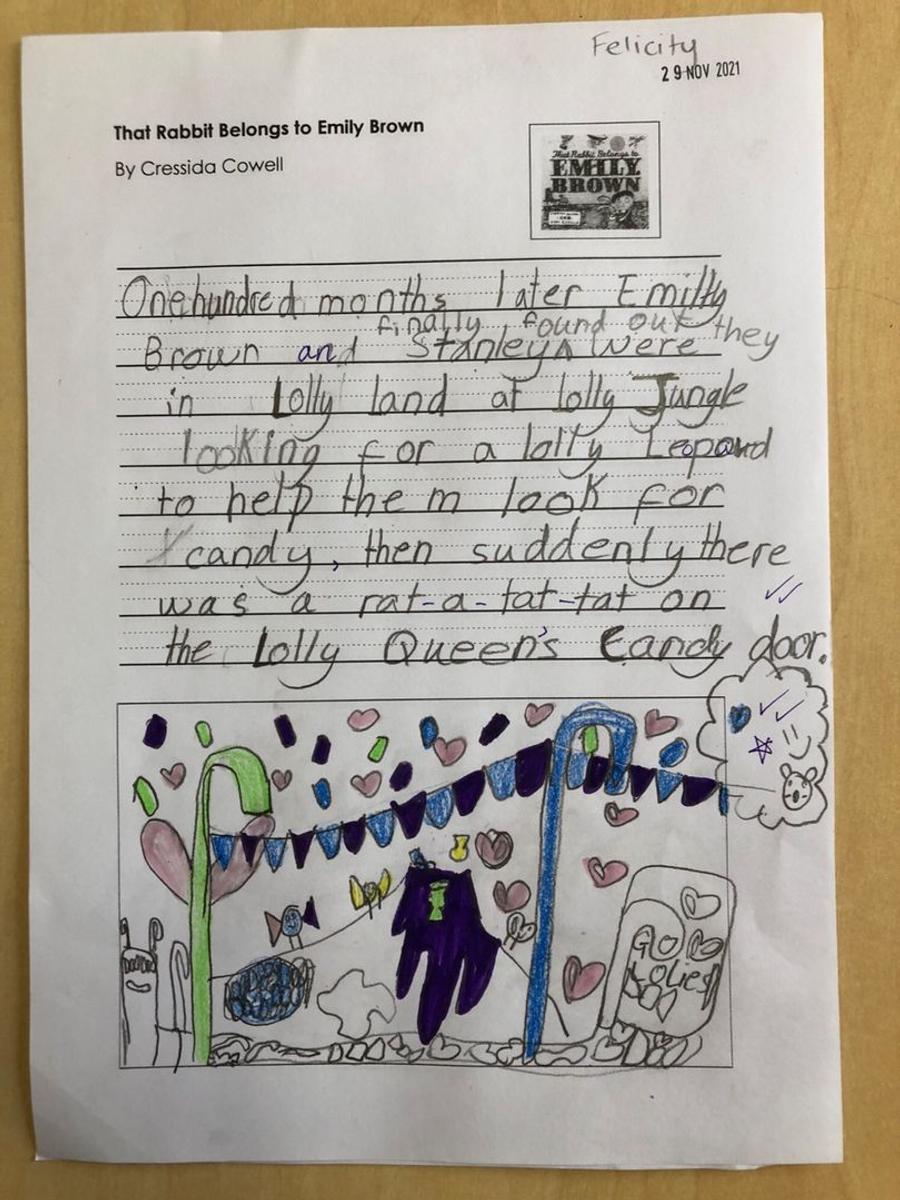 Felicity
29 NOV 2021
That Rabbit Belongs to Emily Brown
By Cressida Cowell
That Rabbit Belongs to
EMILY
BROWN
One hundred months later Emilly
finally found out they
Brown and Stanley were
in Lolly land at lolly Jungle
looking for a lolly Leopard
to help them look for
candy, then suddenly there
was a rat-a-tat-tat on
the Lolly Queen's Candy door.
GO
Lolies